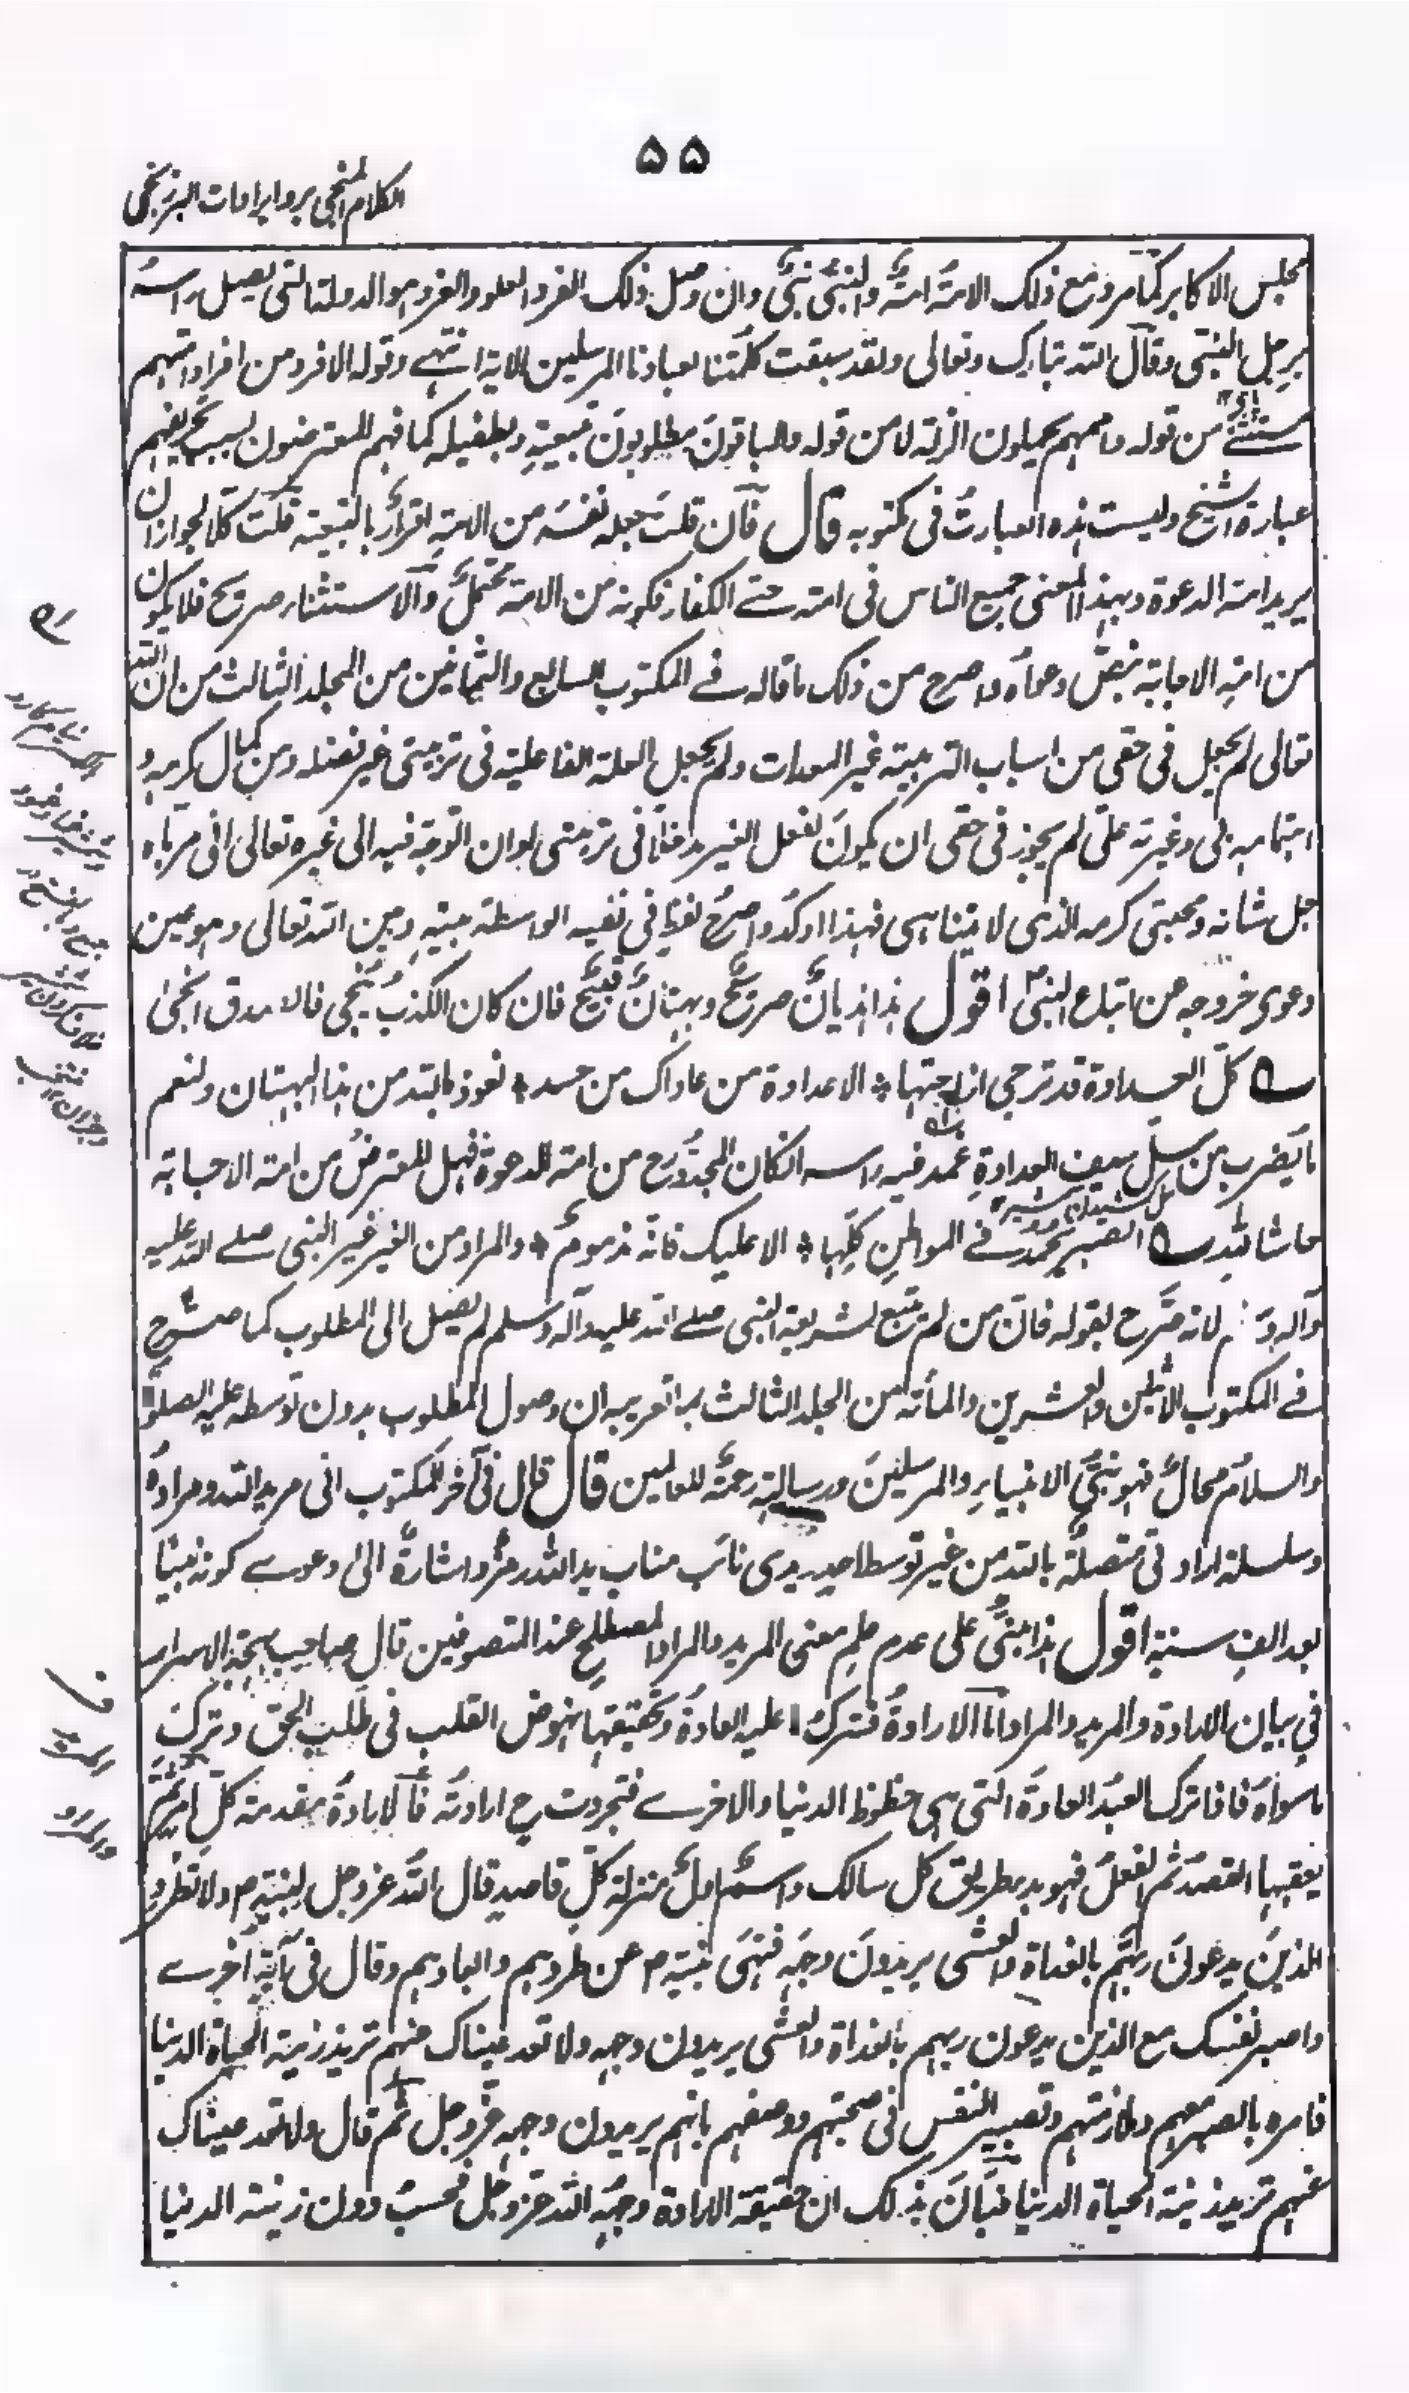 ۵۵
الکلام المنجی برد ایرادات البرزنجی
مجلس الاکابر کما مر ومع ذلک الامة امة والنبی نبی وان وصل ذلک الفرد العلو والغرور هو الدولة التی یصل راسه
برجل النبی وقال الله تبارک وتعالی ولقد سبقت کلمتنا لعبادنا المرسلین الایة انتهے وقوله الا فرد من افراد امتهم
مستثنے من قوله وامهم یحملون الزلة لا من قوله والباقون مطلوبون تبعیة وبطفیله کما فهم المعترضون بسبب تحریفهم
عبارة الشیخ ولیست هذه العبارت فی مکتوبه قال فان قلت جعله نفسه من الامة اقرار بالتبعیة قلت کلا لجواز ان
یرید امة الدعوة وبهذا المعنی جمیع الناس فی امته حتے الکفار فکونه من الامة محتمل والاستثناء صریح فلا یکون
من امة الاجابة بنص دعواه واصرح من ذلک ما قاله فے المکتوب السابع والثمانین من المجلد الثالث من ان الله
تعالی لم یجعل فی حقی من اسباب التربیة غیر المعدات ولم یجعل العلة الفاعلیة فی تربیتی غیر فضله ومن کمال کرمه و
اهتمامه بی وغیرته علی لم یجوز فی حقی ان یکون لفعل الغیر مدخلا فی تربیتی او ان اتوجه فیه الی غیره تعالی انی مرباه
جل شانه ومجتبی کرمه الذی لا یتناهی فهذا اوکد واصرح لفظ فی نفیه الواسطة بینه وبین الله تعالی وهو عین
دعوی خروجه عن اتباع النبی اقول هذا هذیان صریح وبهتان قبیح فان کان الکذب ینجی فالاصدق انجی
کل العداوة قد ترجی ازاحتها * الا عداوة من عاداک من حسد * نعوذ بالله من هذا البهتان ولنعم
ما یضرب من سل سیف العداوة غمد فیه راسه ان کان المجدد رح من امة الدعوة فهل المعترض من امة الاجابة
حاشا لله الصبر یحمد فے المواطن کلها * الا علیک فانه مذموم * والمراد من الغیر غیر النبی صلے الله علیه
وآله و لانه صرح بقوله فان من لم یتبع لشریعة النبی صلے الله علیه وآله وسلم لم یصل الی المطلوب کما صرح
فے المکتوب والعشرین والمائة من المجلد الثالث بما تعریبه ان وصول المطلوب بدون توسطه علیه الصلوة
والسلام محال فهو نبی الانبیاء والمرسلین ورسالته رحمة للعالمین قال قال فی آخر المکتوب انی مرید الله ومراده
وسلسلة ارادتی متصلة بالله من غیر توسط احد یدی نائب مناب ید الله رمز واشارة الی دعوے کونه نبیا
بعد الف سنة اقول هذا مبنی علی عدم علم معنی المرید والمراد المصطلح عند المتصوفین قال صاحب بهجة الاسرار
فی بیان الارادة والمرید والمراد اما الارادة فترک ما علیه العادة وتحقیقها نهوض القلب فی طلب الحق وترک
ما سواه فاذا ترک العبد العادة التی هی حظوظ الدنیا والاخرے فتجردت ح ارادته فالارادة مقدمة کل امر ثم
یعقبها القصد ثم الفعل فهو بدء طریق کل سالک واسم اول منزلة کل قاصد قال الله عز وجل لنبیه م ولا تطرد
الذین یدعون ربهم بالغداة والعشی یریدون وجهه فنهی نبیه م عن طردهم وابعادهم وقال فی آیة اخرے
واصبر نفسک مع الذین یدعون ربهم بالغداة والعشی یریدون وجهه ولا تعد عیناک عنهم ترید زینة الحیاة الدنیا
فامره بالصبر معهم وملازمتهم وتصبیر النفس فی صحبتهم ووصفهم بانهم یریدون وجهه عز وجل ثم قال ولا تعد عیناک
عنهم ترید زینة الحیاة الدنیا فبان بذلک ان حقیقة الارادة وجه الله عز وجل فحسب دون زینة الدنیا
المرید
والمراد